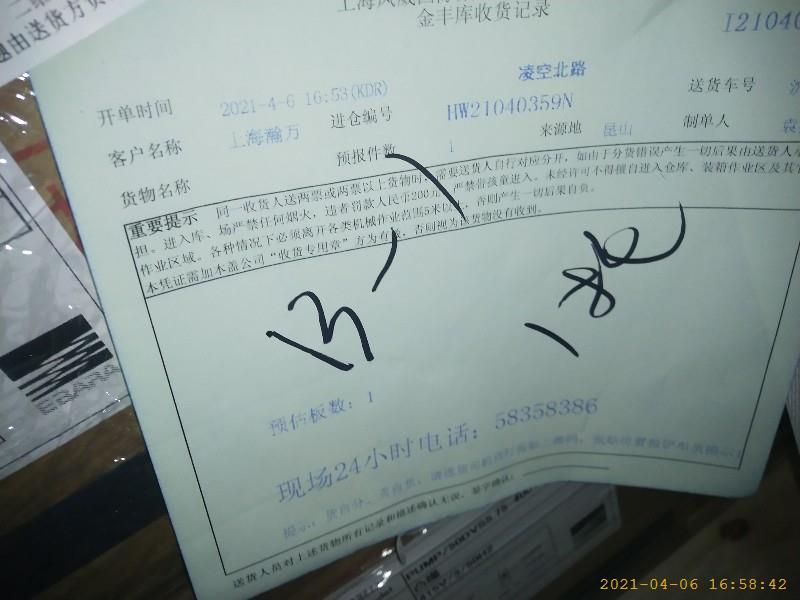 金丰库收货记录
I21040
凌空北路
开单时间 2021-4-6 16:53(KDR) 进仓编号 HW21040359N 送货车号
客户名称 上海瀚万 预报件数 1 来源地 昆山 制单人 袁
货物名称
重要提示 同一收货人送两票或两票以上货物时，需要送货人自行对应分开，如由于分货错误产生一切后果由送货人
担。进入库、场严禁任何烟火，违者罚款人民币200元，严禁带孩童进入。未经许可不得擅自进入仓库、装箱作业区及其
作业区域。各种情况下必须离开各类机械作业范围5米以上，否则产生一切后果自负。
本凭证需加本盖公司“收货专用章”方为有效，否则视为该货物没有收到。
预估板数：1
现场24小时电话：58358386
送货人员对上述货物所有记录和描述确认无误，签字确认：
EBARA
2021-04-06 16:58:42